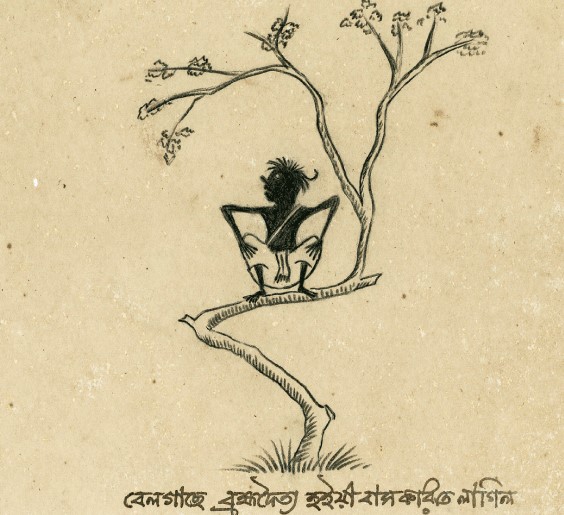 বেলগাছে ব্রহ্মদৈত্য হইয়া বাস করিতে লাগিল